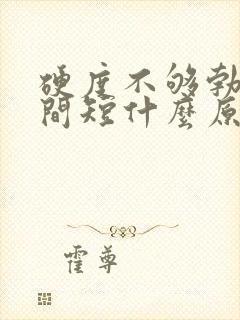 硬度不够勃
間短什麼原
霍尊